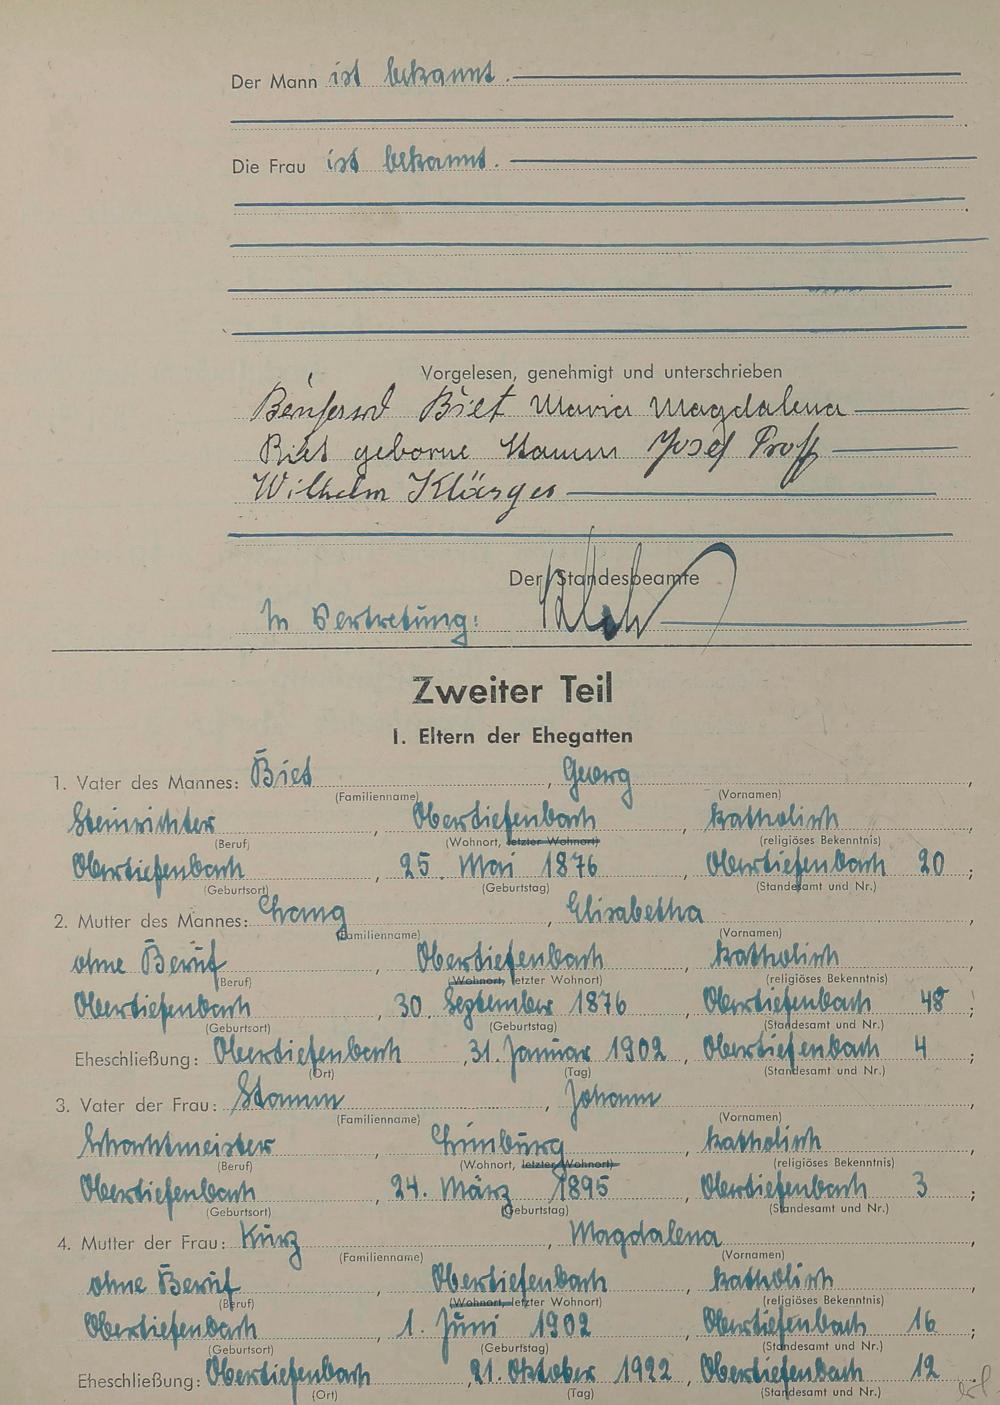 Der Mann ist bekannt.
Die Frau ist bekannt.
Vorgelesen, genehmigt und unterschrieben
Bernhard Biet Maria Magdalena
Biet geborne Stamm Josef Proff
Wilhelm
Der Standesbeamte
In Vertretung:
Zweiter Teil
I. Eltern der Ehegatten
1. Vater des Mannes: Biet, Georg,
(Familienname) (Vornamen)
Steinrichter, Obertiefenbach, katholisch
(Beruf) (Wohnort, letzter Wohnort) (religiöses Bekenntnis)
Obertiefenbach, 25. Mai 1876, Obertiefenbach 20;
(Geburtsort) (Geburtstag) (Standesamt und Nr.)
2. Mutter des Mannes: Elisabetha,
(Familienname) (Vornamen)
ohne Beruf, Obertiefenbach, katholisch
(Beruf) (Wohnort, letzter Wohnort) (religiöses Bekenntnis)
Obertiefenbach, 30. September 1876, Obertiefenbach 48;
(Geburtsort) (Geburtstag) (Standesamt und Nr.)
Eheschließung: Obertiefenbach, 31. Januar 1902, Obertiefenbach 4;
(Ort) (Tag) (Standesamt und Nr.)
3. Vater der Frau: Stamm, Johann,
(Familienname) (Vornamen)
Schachtmeister, Limburg, katholisch
(Beruf) (Wohnort, letzter Wohnort) (religiöses Bekenntnis)
Obertiefenbach, 24. März 1895, Obertiefenbach 3;
(Geburtsort) (Geburtstag) (Standesamt und Nr.)
4. Mutter der Frau: Kurz, Magdalena,
(Familienname) (Vornamen)
ohne Beruf, Obertiefenbach, katholisch
(Beruf) (Wohnort, letzter Wohnort) (religiöses Bekenntnis)
Obertiefenbach, 1. Juni 1902, Obertiefenbach 16;
(Geburtsort) (Geburtstag) (Standesamt und Nr.)
Eheschließung: Obertiefenbach, 21. Oktober 1922, Obertiefenbach 12.
(Ort) (Tag) (Standesamt und Nr.)